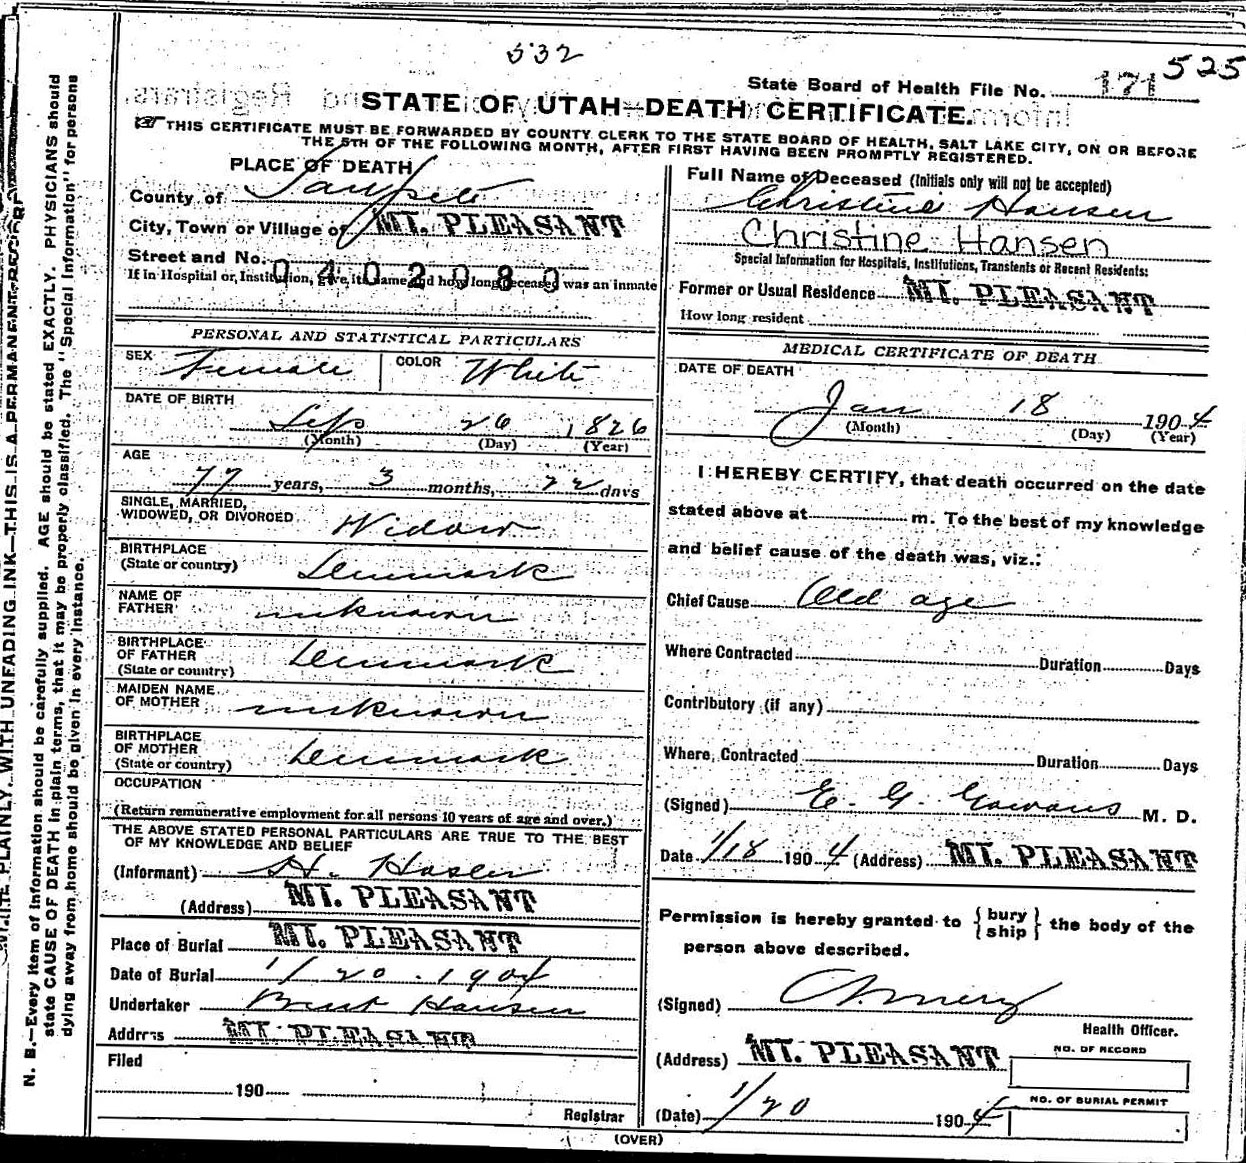 532
525
State Board of Health File No. 171
STATE OF UTAH—DEATH CERTIFICATE.
THIS CERTIFICATE MUST BE FORWARDED BY COUNTY CLERK TO THE STATE BOARD OF HEALTH, SALT LAKE CITY, ON OR BEFORE
THE 5TH OF THE FOLLOWING MONTH, AFTER FIRST HAVING BEEN PROMPTLY REGISTERED.
PLACE OF DEATH
County of Sanpete
City, Town or Village of MT. PLEASANT
Street and No.
0402080
If in Hospital or Institution, give its name and how long deceased was an inmate
PERSONAL AND STATISTICAL PARTICULARS
SEX Female COLOR White
DATE OF BIRTH
Sep 26 1826
(Month) (Day) (Year)
AGE
77 years, 3 months, 22 days
SINGLE, MARRIED,
WIDOWED, OR DIVORCED Widow
BIRTHPLACE
(State or country) Denmark
NAME OF
FATHER unknown
BIRTHPLACE
OF FATHER Denmark
(State or country)
MAIDEN NAME
OF MOTHER unknown
BIRTHPLACE
OF MOTHER Denmark
(State or country)
OCCUPATION
(Return remunerative employment for all persons 10 years of age and over.)
THE ABOVE STATED PERSONAL PARTICULARS ARE TRUE TO THE BEST
OF MY KNOWLEDGE AND BELIEF
(Informant) H. Hasler
(Address) MT. PLEASANT
Place of Burial MT. PLEASANT
Date of Burial 1/20.1904
Undertaker Hansen
Address MT. PLEASANT
Filed
190
Registrar
Full Name of Deceased (Initials only will not be accepted)
Christine Hansen
Christine Hansen
Special Information for Hospitals, Institutions, Transients or Recent Residents:
Former or Usual Residence MT. PLEASANT
How long resident
MEDICAL CERTIFICATE OF DEATH
DATE OF DEATH
Jan 18 1904
(Month) (Day) (Year)
I HEREBY CERTIFY, that death occurred on the date
stated above at m. To the best of my knowledge
and belief cause of the death was, viz.:
Chief Cause Old age
Where Contracted Duration Days
Contributory (if any)
Where Contracted Duration Days
(Signed) E. G. Gowans M. D.
Date 1/18 1904 (Address) MT. PLEASANT
Permission is hereby granted to {bury
ship} the body of the
person above described.
(Signed)
Health Officer.
(Address) MT. PLEASANT
NO. OF RECORD
(Date) 1/20 1904
NO. OF BURIAL PERMIT
(OVER)
N. B.—Every item of information should be carefully supplied. AGE should be stated EXACTLY. PHYSICIANS should
state CAUSE OF DEATH in plain terms, that it may be properly classified. The "Special Information" for persons
dying away from home should be given in every instance.
PLAINLY, WITH UNFADING INK—THIS IS A PERMANENT RECORD